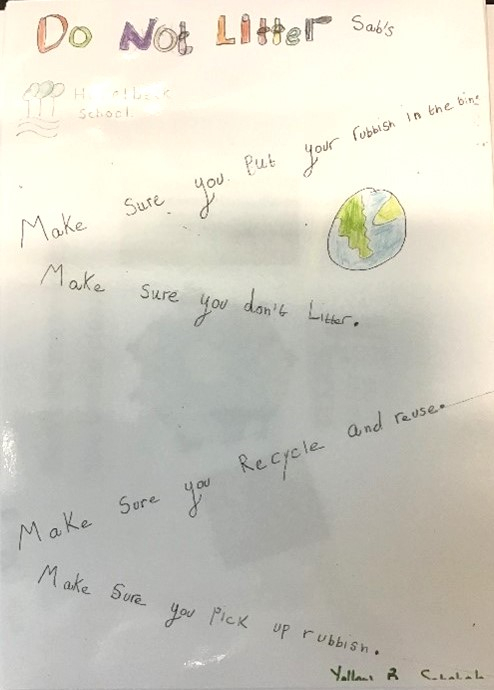 Do Not Litter Sab's
School
Make Sure you Put your rubbish in the bin.
Make Sure you don't Litter.
Make Sure you Recycle and reuse.
Make Sure you Pick up rubbish.